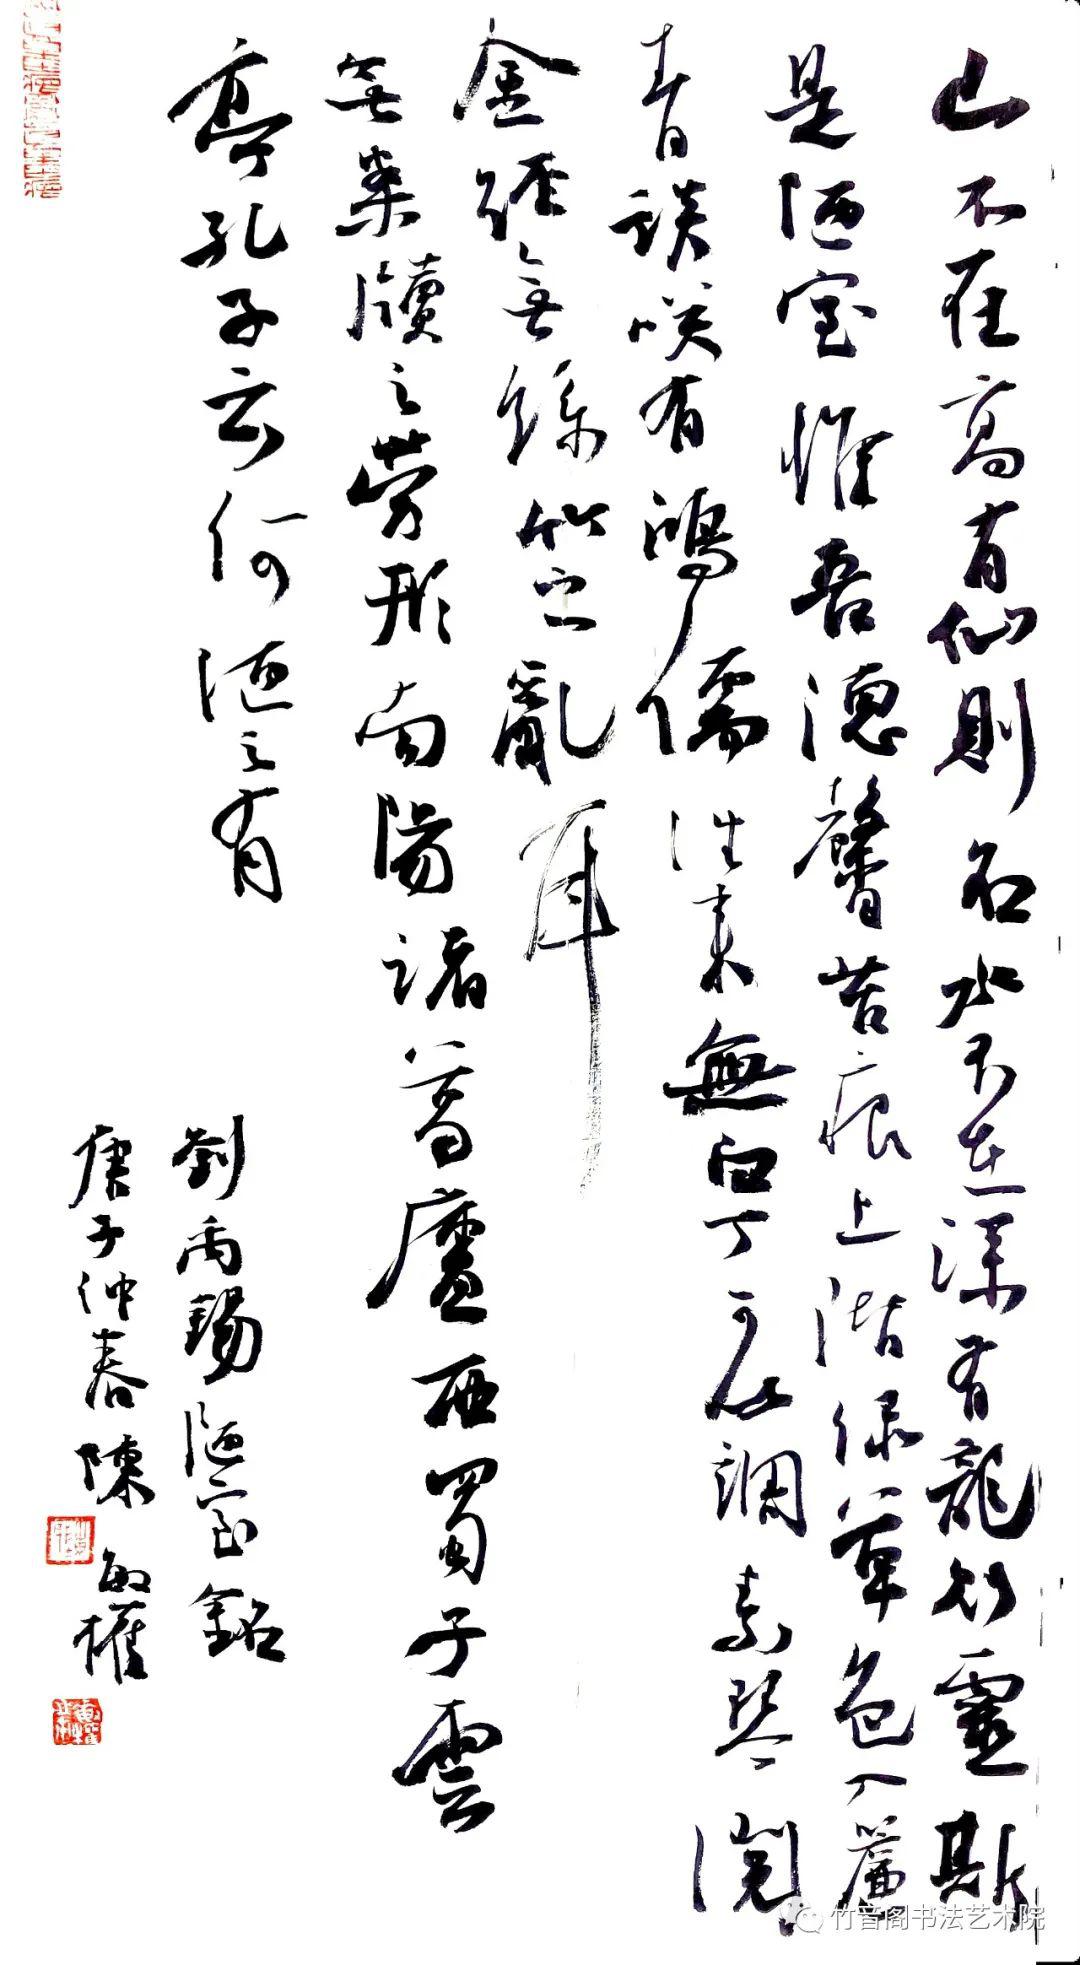 山不在高有仙則名水不在深有龍則靈斯
是陋室惟吾德馨苔痕上階綠草色入簾
青談咲有鴻儒往來無白丁可以調素琴閱
金經無絲竹之亂耳
無案牘之勞形南陽諸葛廬西蜀子雲
亭孔子云何陋之有
劉禹錫陋室銘
庚子仲春陳敏權
竹音阁书法艺术院